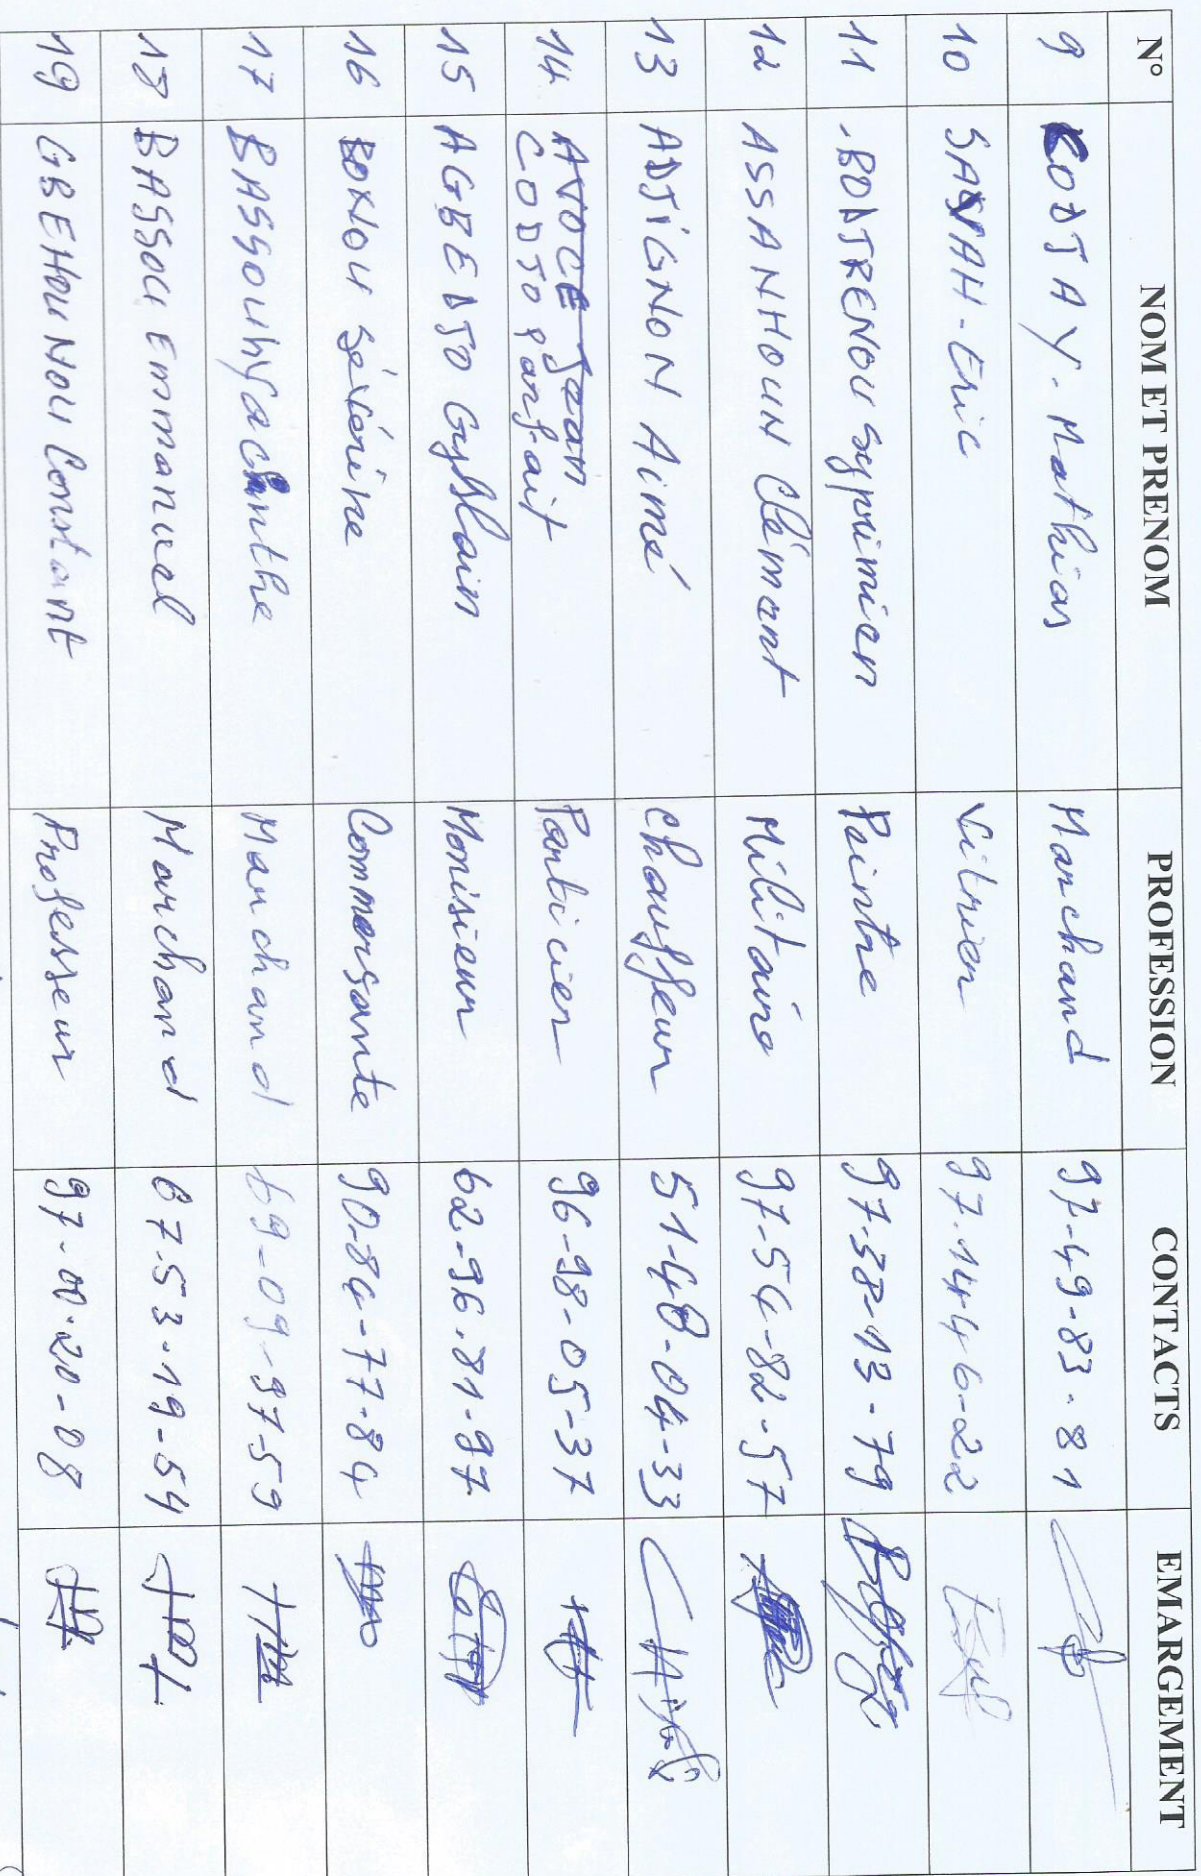 N° NOM ET PRENOM PROFESSION CONTACTS EMARGEMENT
9 CODJAY. Mathias Marchand 97-49-83-81
10 SAVAH-Eric Vitrier 97.14-46-22
11 .BODJRENOU Syprimien Peintre 97-38-13-79
12 ASSANHOUN Clément Militaire 97-54-82-57
13 ADJIGNON Aimé chauffeur 51-40-04-33
14 AVOCE Jean
CODJO parfait Pointicien 96-98-05-37
15 AGBEDJO Gyslain Monisieur 62-96-81-97
16 BOKNOU Sévérine Commersante 90-84-77-84
17 BASSOUhyacinthe Marchand 69-09-97-59
18 BASSOU Emmanuel Marchand 67-53-19-54
19 GBEHOUNOU Constant Professeur 97-00-20-08